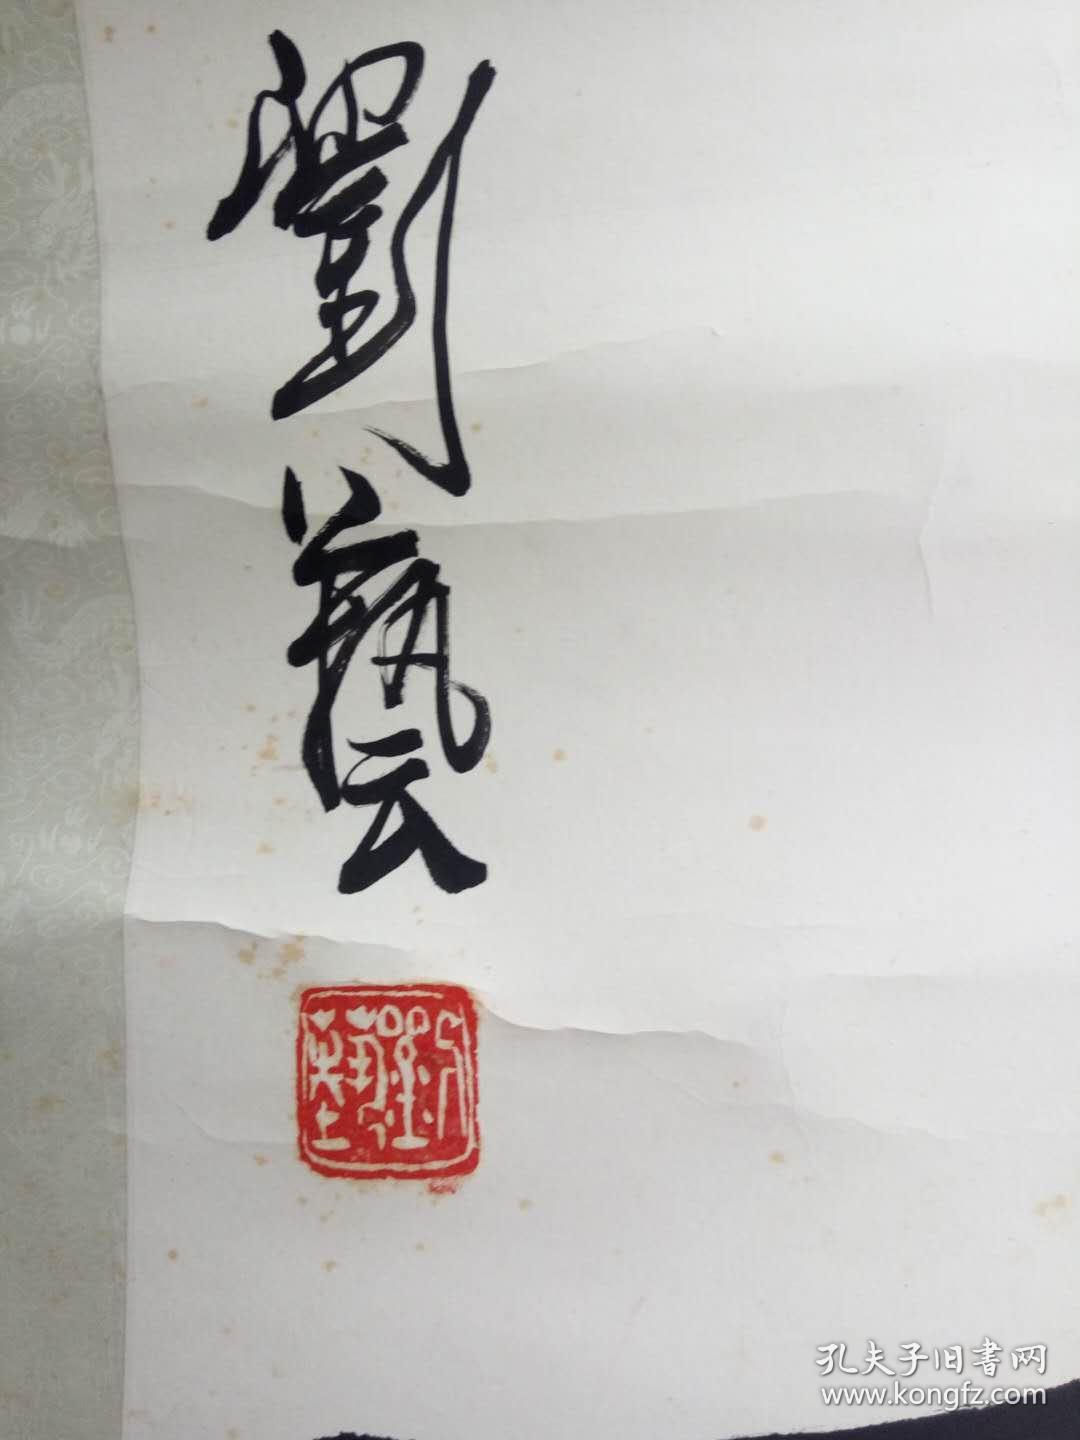 劉藝
孔夫子旧書网
www.kongfz.com